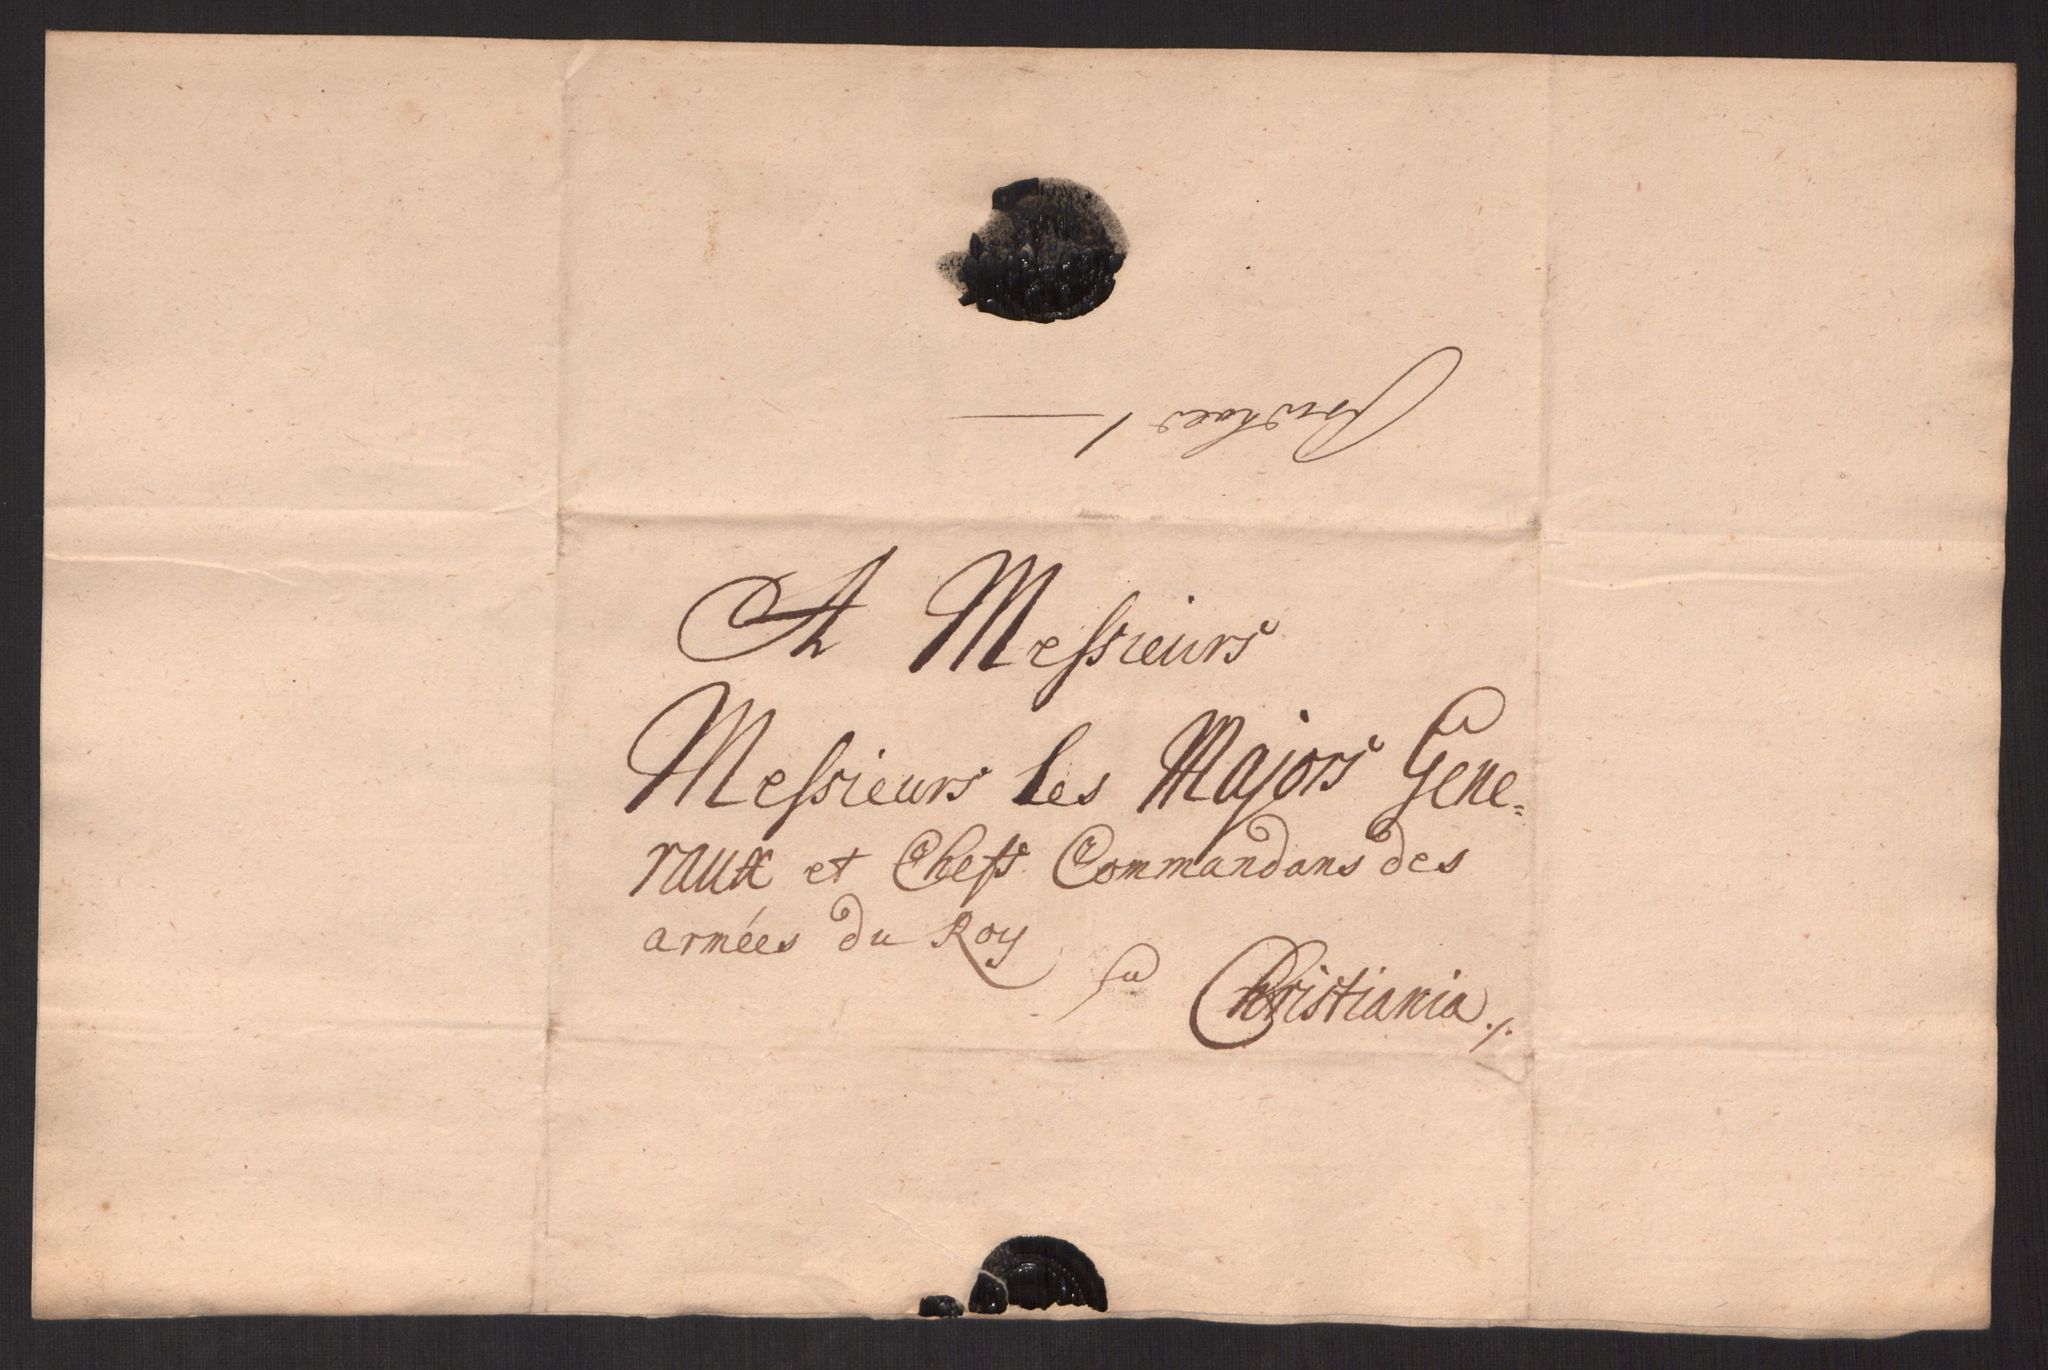 A Messieurs
Messieurs les Majors Gene=
raux et Chefs Commandans des
armées du Roy
Christiania ./.